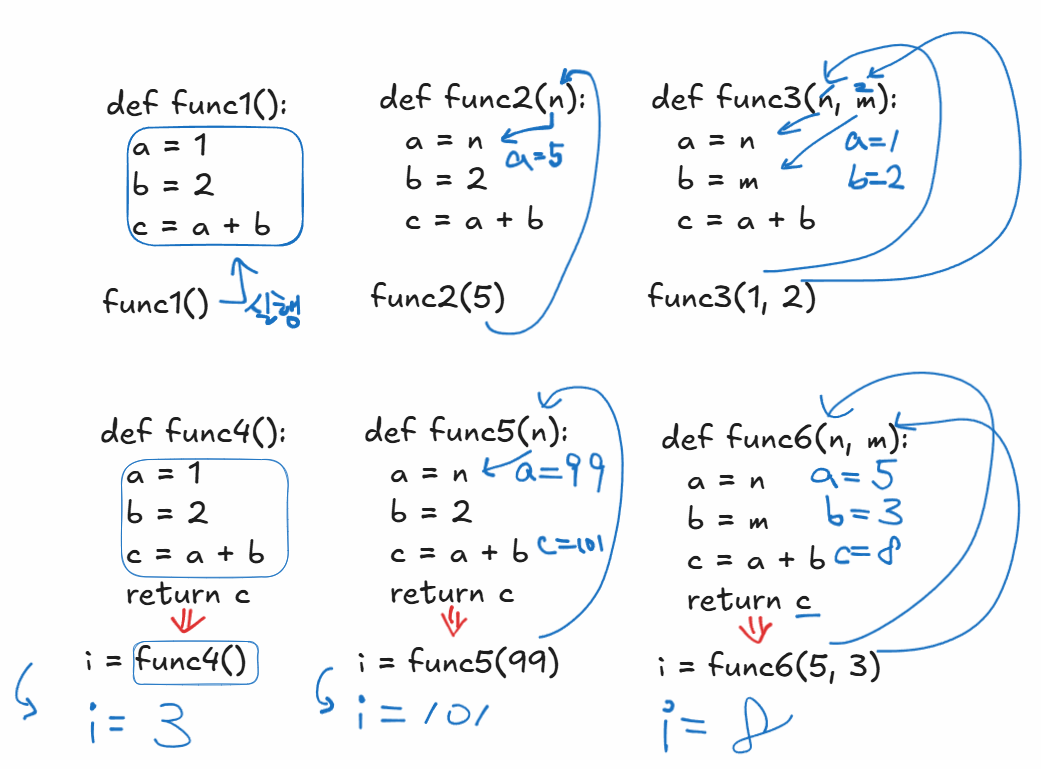 def func1():
a = 1
b = 2
c = a + b
func1()
실행
def func2(n):
a = n
a=5
b = 2
c = a + b
func2(5)
def func3(n, m):
2
a = n
a=1
b = m
b=2
c = a + b
func3(1, 2)
def func4():
a = 1
b = 2
c = a + b
return c
i = func4()
i = 3
def func5(n):
a = n
a=99
b = 2
c = a + b
c=101
return c
i = func5(99)
i = 101
def func6(n, m):
a = n
a=5
b = m
b=3
c = a + b
c=8
return c
i = func6(5, 3)
i = 8